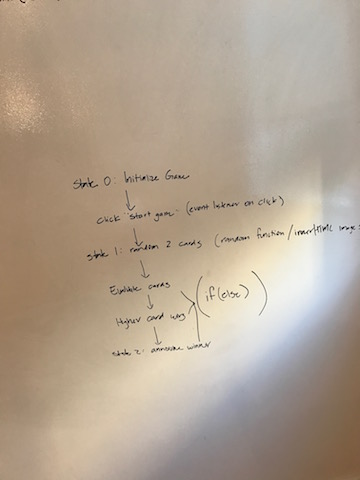 State 0: Initialize Game
click "Start game" (event listener on click)
State 1: random 2 cards (random function / innerHTML image
Evaluate cards
Higher card wins
(if (else))
State 2: announce winner